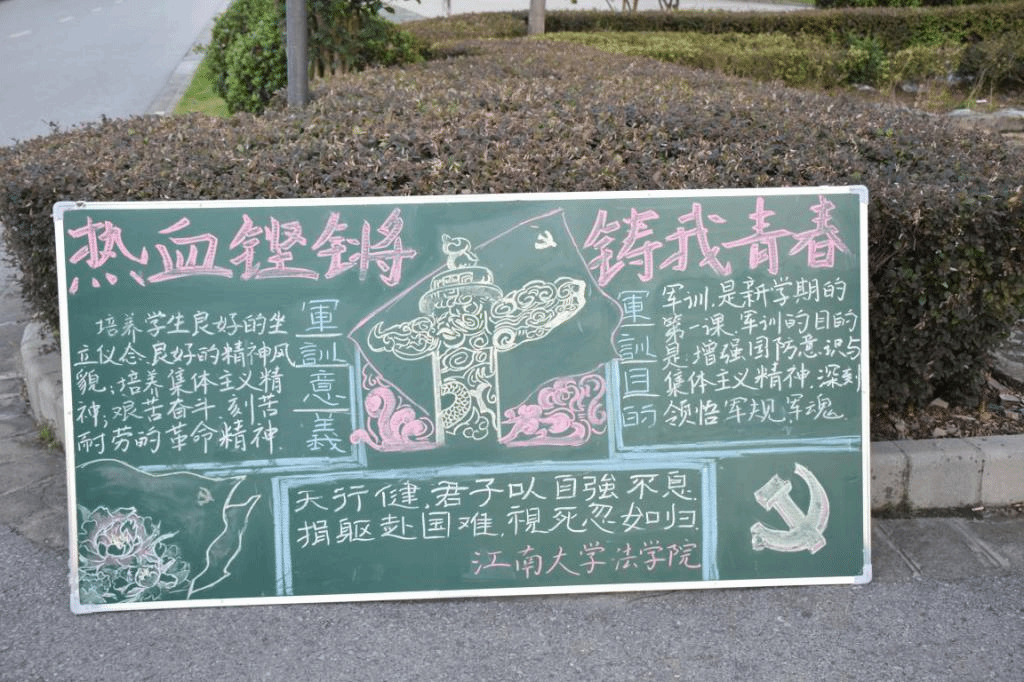 热血铿锵
铸我青春
軍訓意義
培养学生良好的坐
立仪念良好的精神风
貌,培养集体主义精
神,艰苦奋斗,刻苦
耐劳的革命精神.
軍訓目的
军训,是新学期的
第一课,军训的目的
是,增强国防意识与
集体主义精神,深刻
领悟军规军魂.
天行健,君子以自強不息.
捐躯赴国难,視死忽如归.
江南大学法学院